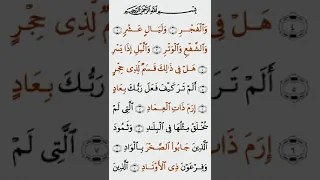 بِسْمِ اللَّهِ الرَّحْمَٰنِ الرَّحِيمِ
وَالْفَجْرِ ۝ وَلَيَالٍ عَشْرٍ ۝
وَالشَّفْعِ وَالْوَتْرِ ۝ وَاللَّيْلِ إِذَا يَسْرِ ۝
هَلْ فِي ذَٰلِكَ قَسَمٌ لِّذِي حِجْرٍ ۝
أَلَمْ تَرَ كَيْفَ فَعَلَ رَبُّكَ بِعَادٍ ۝
إِرَمَ ذَاتِ الْعِمَادِ ۝ الَّتِي لَمْ
يُخْلَقْ مِثْلُهَا فِي الْبِلَادِ ۝ وَثَمُودَ
الَّذِينَ جَابُوا الصَّخْرَ بِالْوَادِ ۝
وَفِرْعَوْنَ ذِي الْأَوْتَادِ ۝ الَّذِينَ